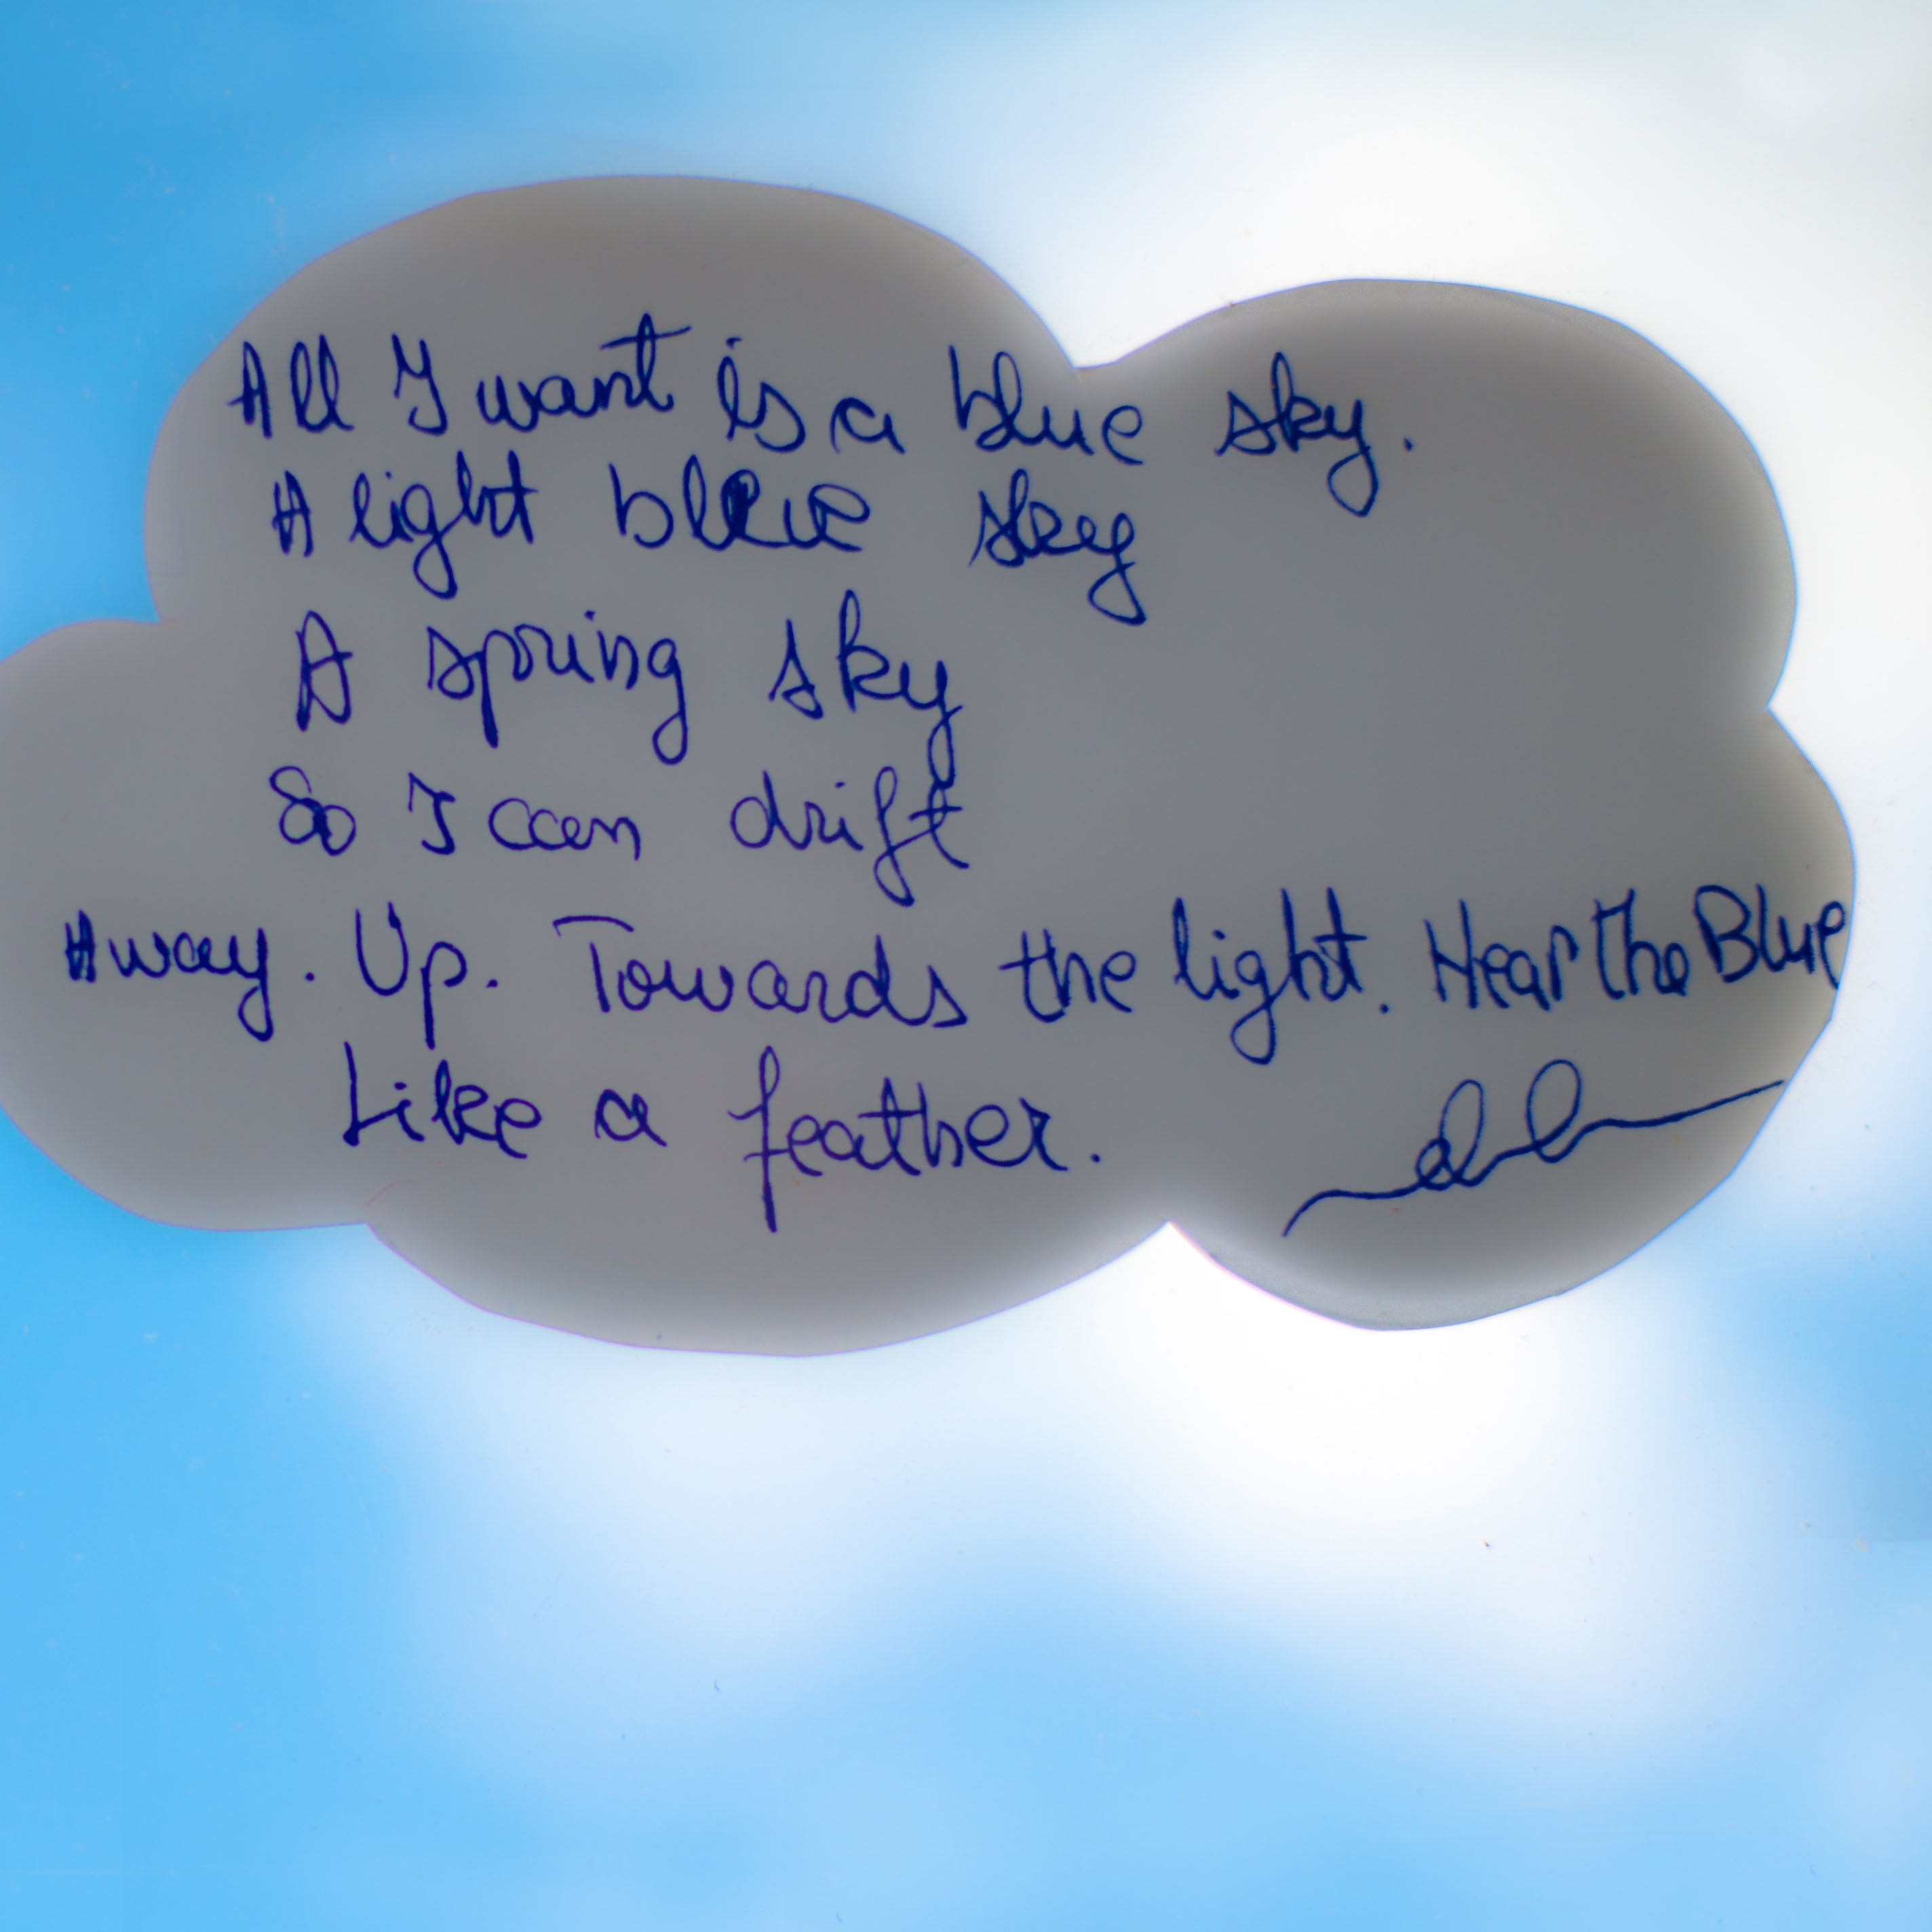 All I want is a blue sky.
A light blue sky
A spring sky
So I can drift
Away. Up. Towards the light. Hear The Blue
Like a feather.